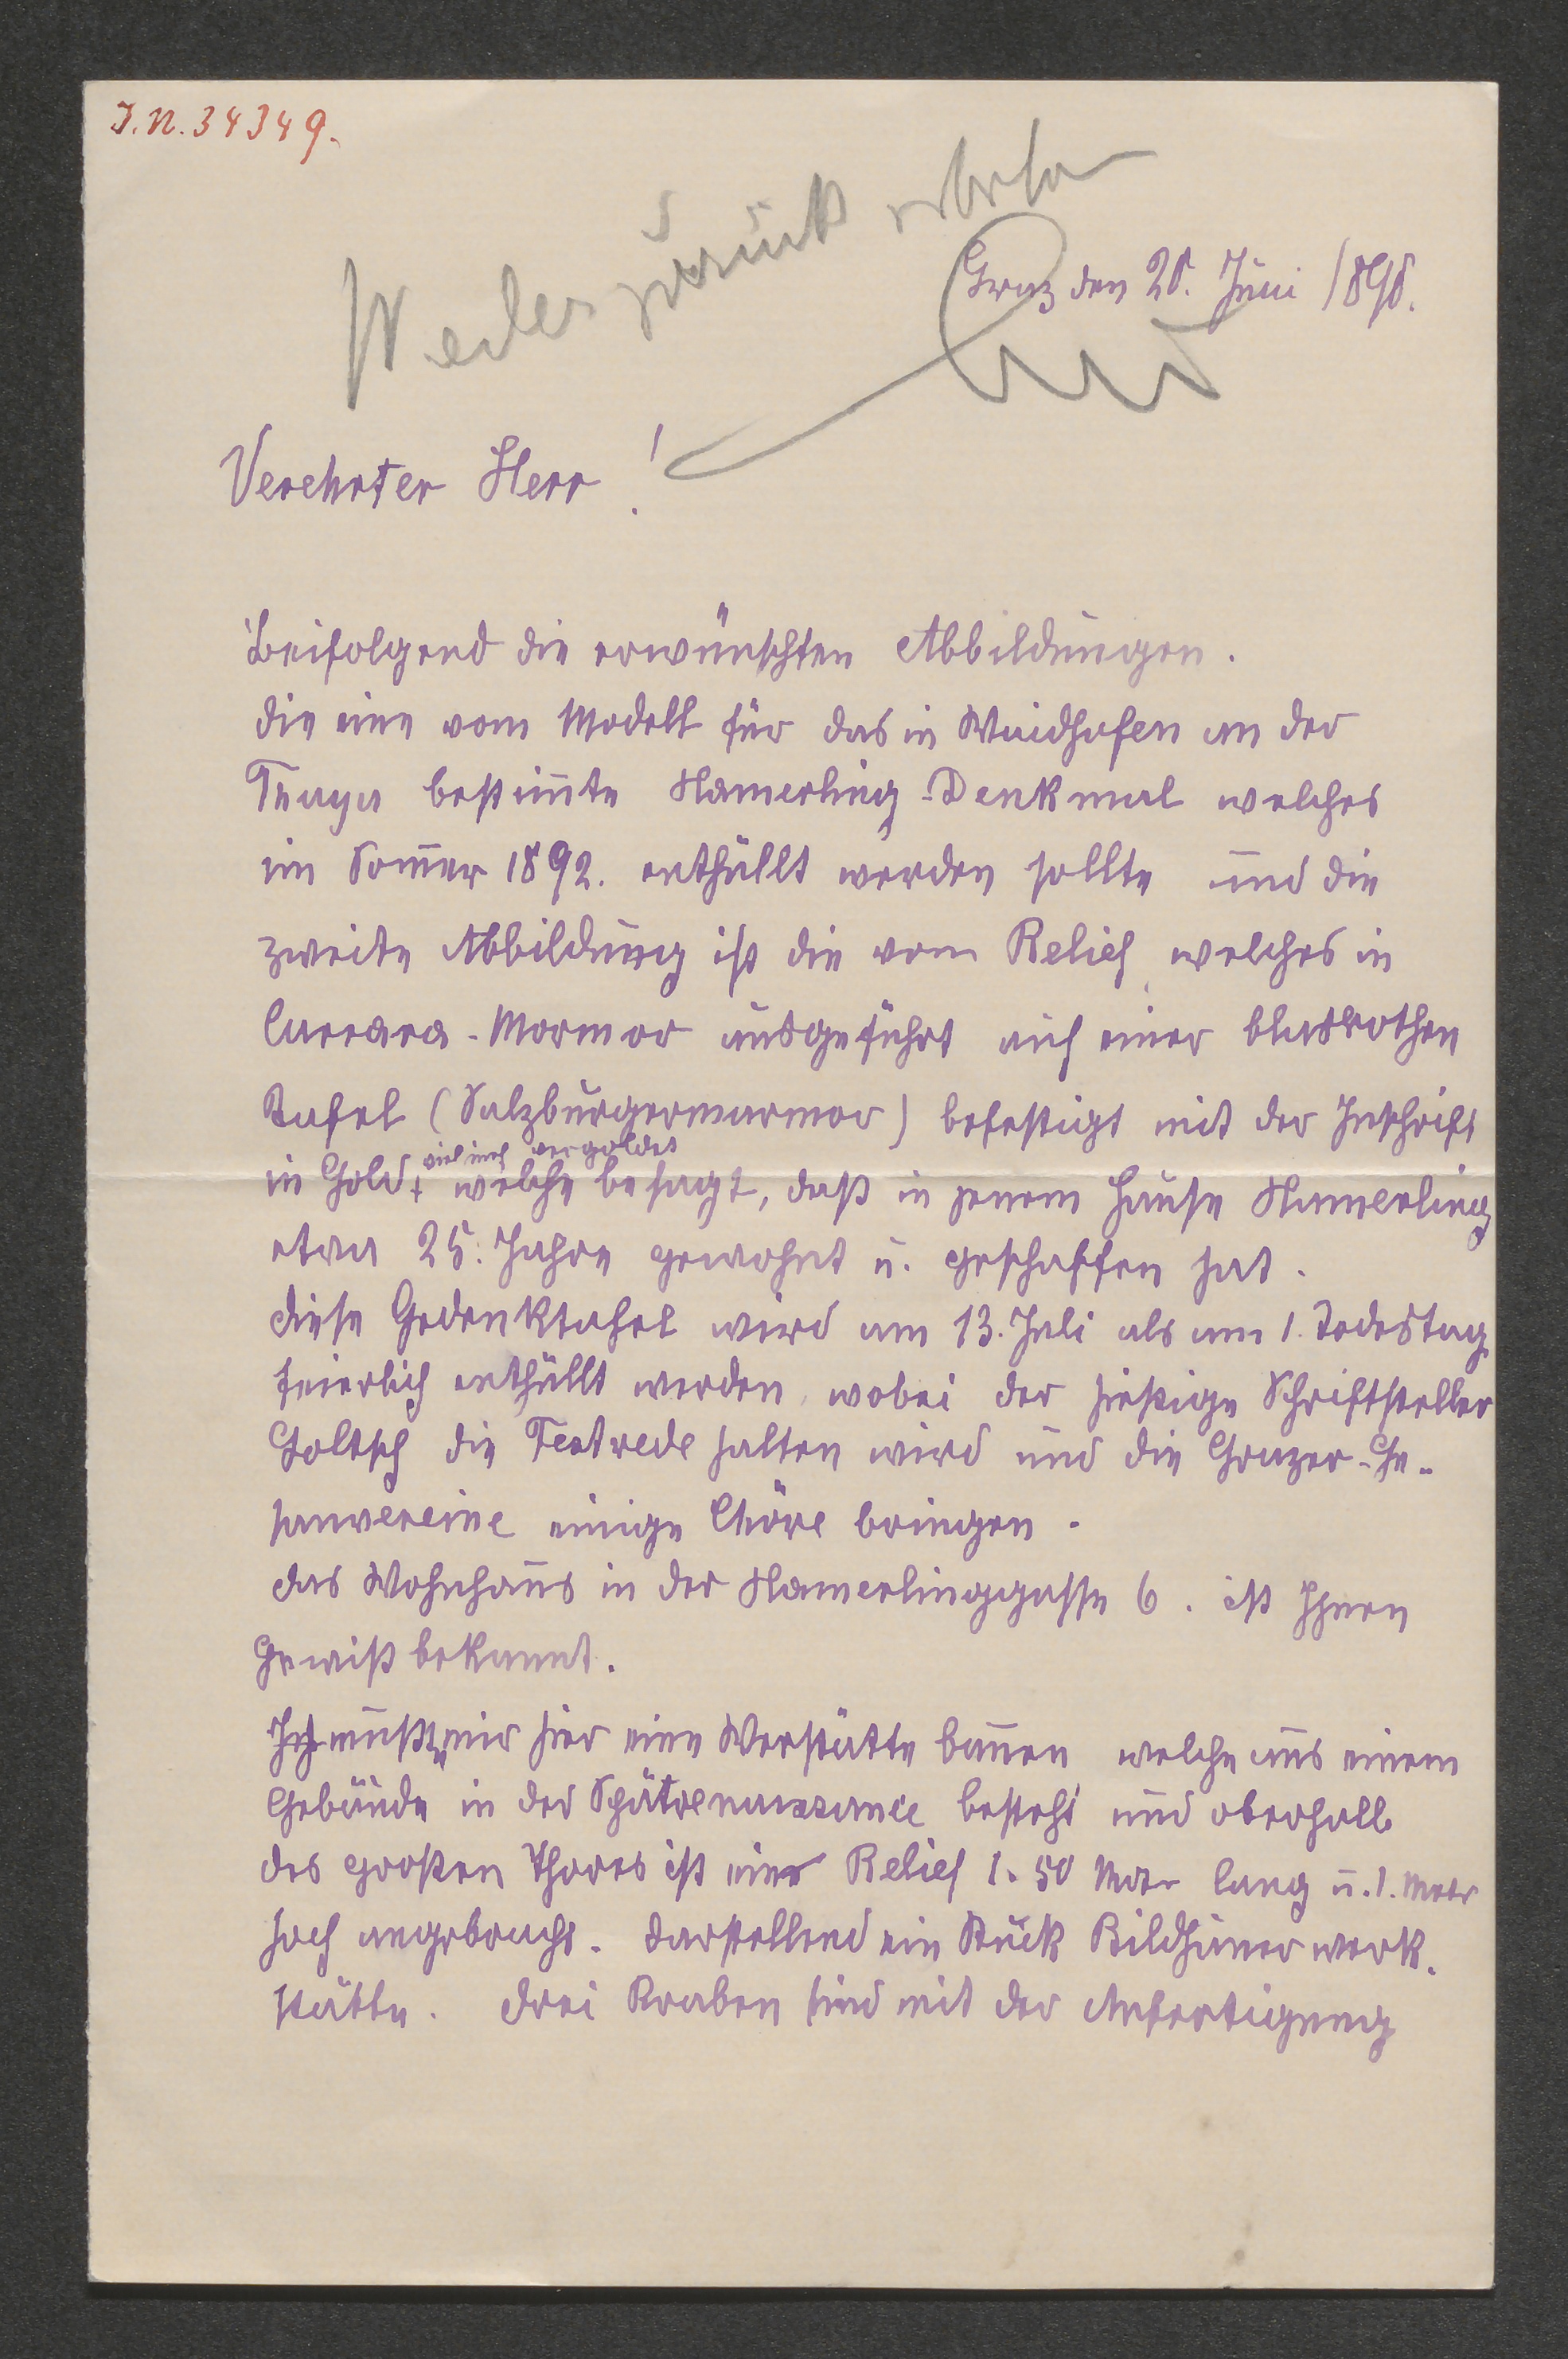 J.N. 34349.
Wieder zurück erbeten
Graz den 20. Juni 1890.
Verehrter Herr!
Beifolgend die erwünschten Abbildungen.
die eine vom Modell für das in Waidhofen an der
Thaya bestim̄te Hamerling-Denkmal welches
im Som̄er 1892. enthüllt werden sollte und die
zweite Abbildung ist die vom Relief welches in
Carrara-Mormor ausgeführt auf einer blasrothen
Tafel (Salzburgermarmor) befestigt mit der Inschrift
vergoldet
in Gold + welche besagt, daß in jenem Hause Hamerling
etwa 25. Jahre gewohnt u. geschaffen hat.
diese Gedenktafel wird am 13. Juli als am 1. Todestag
feierlich enthüllt werden, wobei der hießige Schriftsteller
Goltsch die Festrede halten wird und die Grazer-Ge-
sanvereine einige Chöre bringen.
das Wohnhaus in der Hamerlinggasse 6. ist Ihnen
Gewiß bekannt.
Ich mußte mir hier eine Werstätte bauen welche aus einem
Gebäude in der Spätrenaissance besteht und oberhalb
des großen Thores ist eine Relief 1.50 Met. lang u. 1. Meter
hoch angebracht. darstellend ein Stück Bildhauerwerk-
stätte. drei Knaben sind mit der Anfertigung